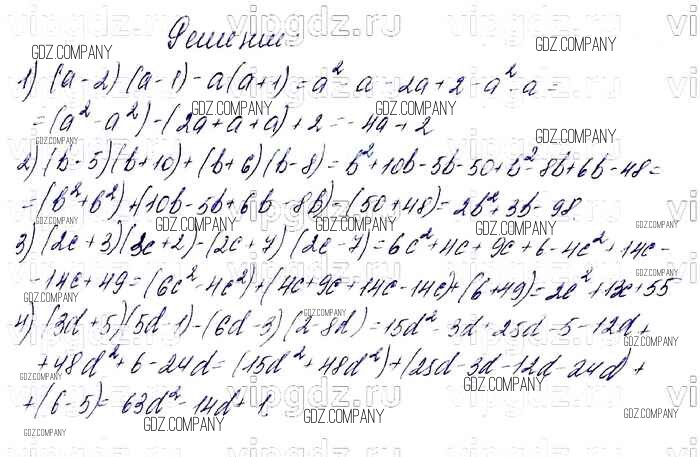 Решение:
1) (a - 2)(a - 1) - a(a + 1) = a² - a - 2a + 2 - a² - a =
= (a² - a²) - (2a + a + a) + 2 = - 4a + 2
2) (b - 5)(b + 10) + (b + 6)(b - 8) = b² + 10b - 5b - 50 + b² - 8b + 6b - 48 =
= (b² + b²) + (10b - 5b + 6b - 8b) - (50 + 48) = 2b² + 3b - 98.
3) (2c + 3)(3c + 2) - (2c + 7)(2c - 7) = 6c² + 4c + 9c + 6 - 4c² + 14c -
- 14c + 49 = (6c² - 4c²) + (4c + 9c + 14c - 14c) + (6 + 49) = 2c² + 13c + 55
4) (3d + 5)(5d - 1) - (6d - 3)(2 - 8d) = 15d² - 3d + 25d - 5 - 12d +
+ 48d² + 6 - 24d = (15d² + 48d²) + (25d - 3d - 12d - 24d) +
+ (6 - 5) = 63d² - 14d + 1.